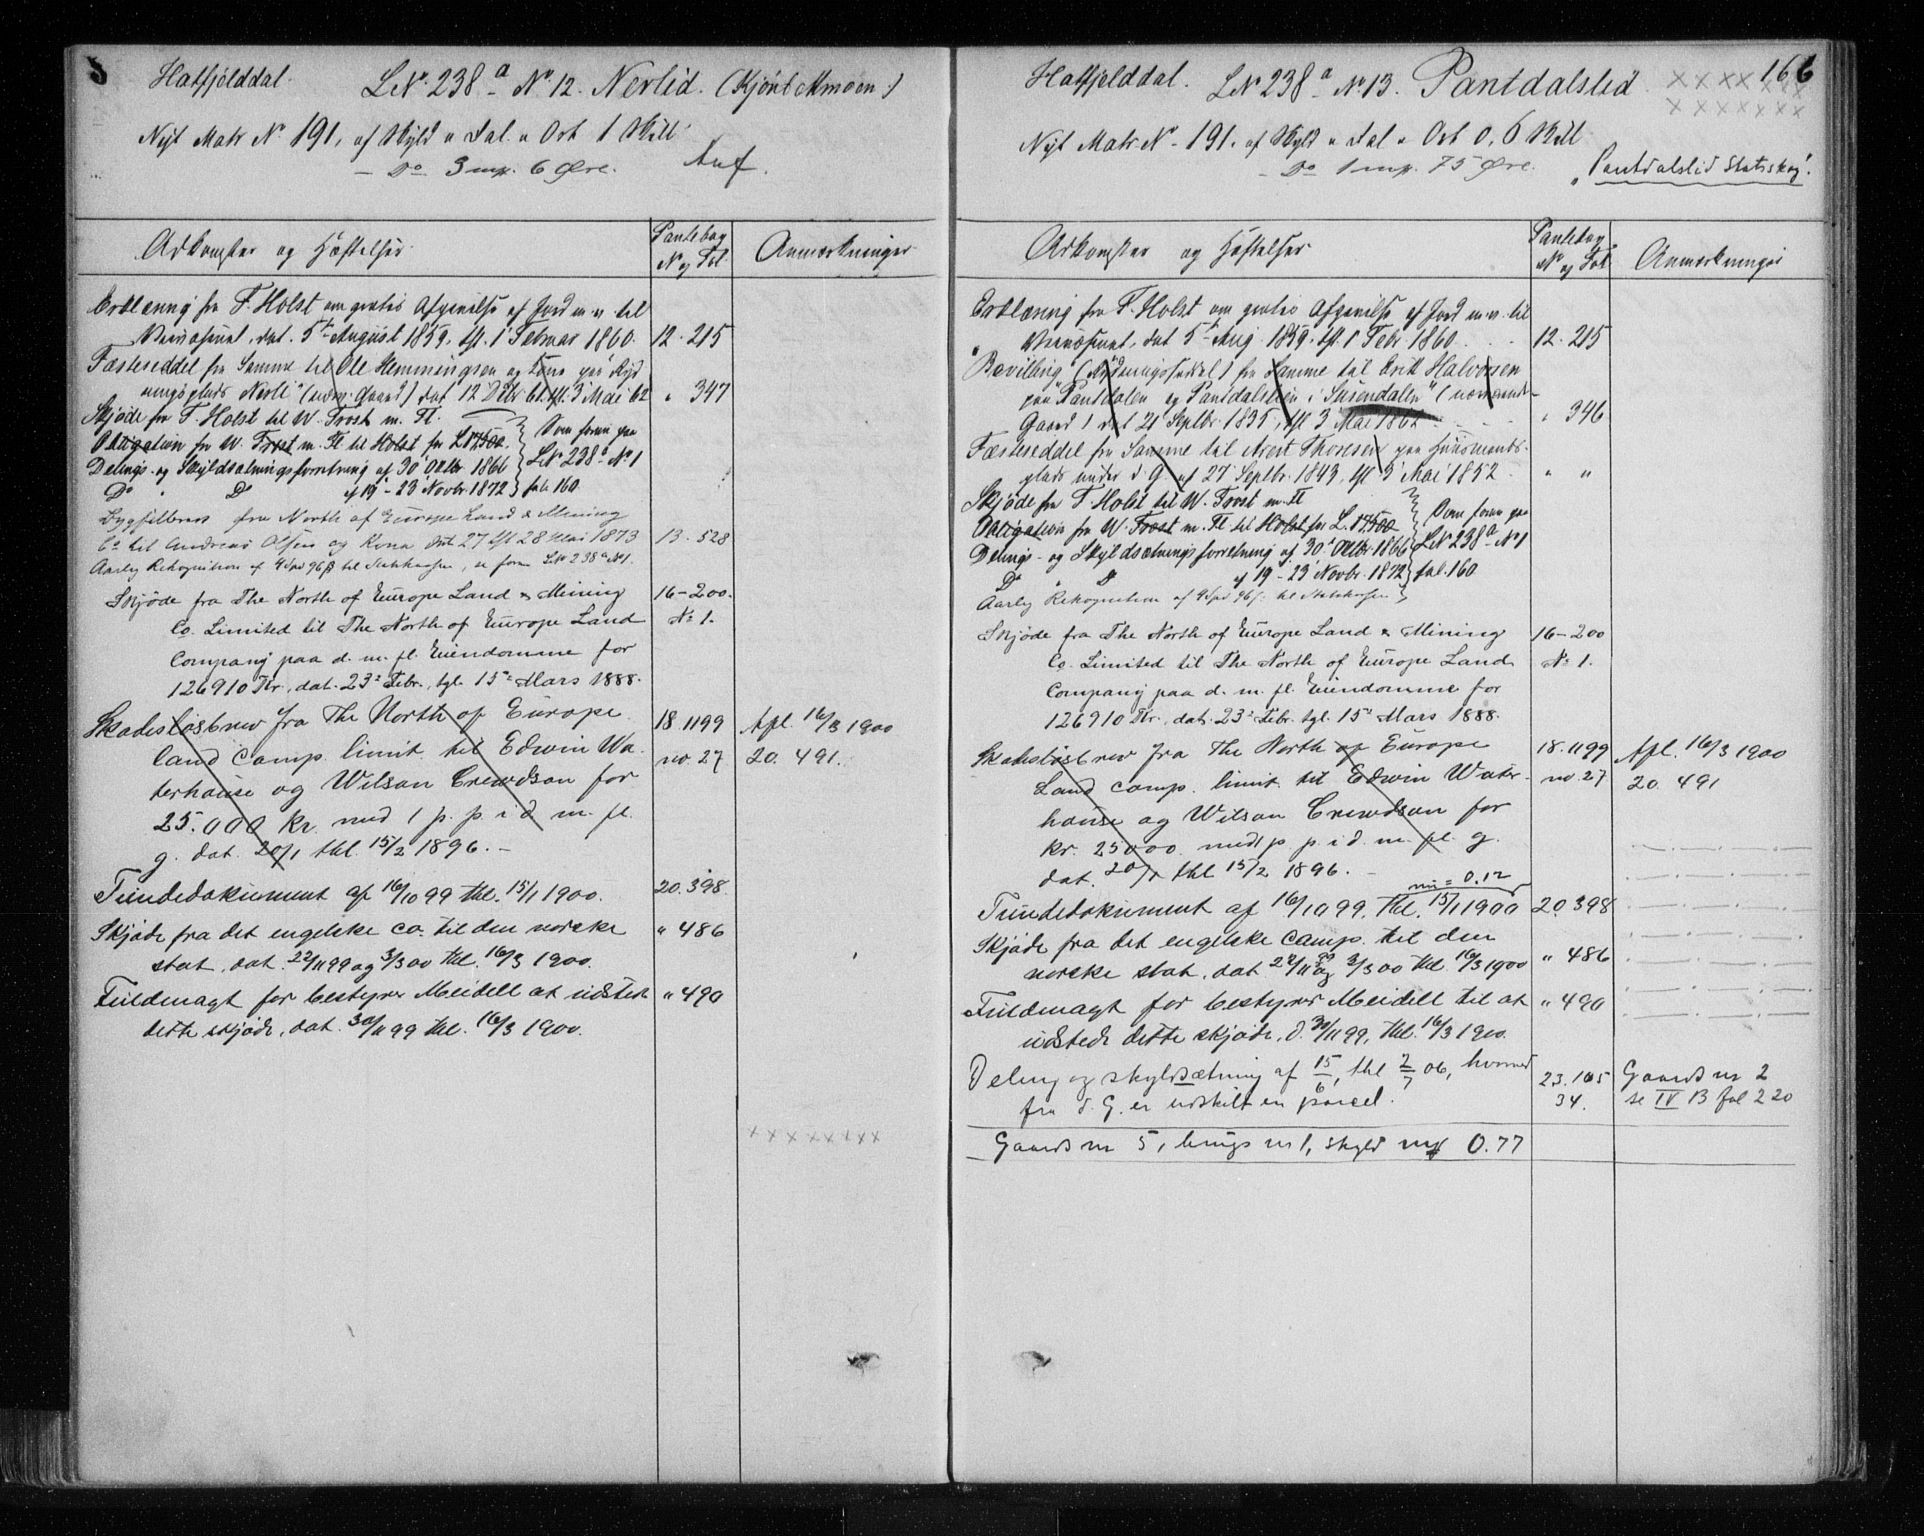 Hatfjelddal. LNº 238ª Nº 12. Nerlid. (Kjørt Almoen.)
Nyt Matr Nº 191, af Skyld " Dal. " Ort 1 Skill
- Dº 3 mk. 6 Øre.
Adkomster og Hæftelser
Pantebog
Nº og Fol
Anmærkninger
Erklæring fra F. Holst om gratis Afgivelse af Jord m. v. til
dat. 5te August 1859, tgl. 1 Februar 1860. 12. 215
Fæsteseddel fra Samme til Ole Hemmingsen og Kone paa Ryd
ningsplads Nerli" (nærv. Gaard) dat 12 Oktbr 61. tgl. 3 Mai 62 " 347
Skjøde fra F. Holst til W. Frost m. Fl.
Obligation fra W. Frost m. Fl til Holst for L. 17500.
Delings- og Skyldsætningsforretning af 30' Oktbr 1866
Dº " Dº af 19'-23' Novbr. 1872
Som foran paa
LNº 238ª Nº 1
fol. 160
Bygselbrev fra North of Europe Land & Mining
Cº til Andreas Olsen og Kona dat 27 tgl 28 Mai 1873 13. 528
Aarlig Rekognition af 4 Spd 96 β til Statskassen, se foran LNº 238ª Nº 1.
Skjøde fra The North of Europe Land & Mining 16-200.
Co. Limited til The North of Europe Land Nº 1.
Company paa d. m. fl. Eiendomme for
126910 Kr., dat. 23' Febr., tgl. 15' Mars 1888.
Skadesløsbrev fra The North of Europe 18 1199 Afl. 16/3 1900
Land Comp. limit. til Edwin Wa- no. 27 20. 491.
terhouse og Wilson Crewdson for
25.000 kr. med 1 p. p i d m. fl.
g. dat. 20/1 thl. 15/2 1896. -
Fundedokument af 16/10 99 thl. 15/1 1900. 20. 398.
Skjøde fra det engelske co. til den norske " 486
stat, dat. 22/11 99 og 3/3 00 thl. 16/3 1900.
Fuldmagt for bestyrer Meidell at udstede " 490
dette skjøde, dat. 30/11 99 thl. 16/3 1900.
x x x x x x x x
Hatfjelddal. LNº 238ª Nº 13. Pantdalslid x x x x 166
x x x x x x x
Nyt Matr Nº - 191. af Skyld " Dal " Ort 0, 6 Skill
- Dº 1 mk. 75 Øre. "Pantdalslid Statsskog".
Adkomster og Hæftelser
Pantebog
Nº og Fol
Anmærkninger
Erklæring fra F. Holst om gratis Afgivelse af Jord m. v. til
dat 5te Aug. 1859. tgl. 1 Febr 1860. 12. 215
Bevilling (Rydningsseddel) fra Samme til Erik Halvorsen
paa "Pantdalen og Pantdalslien i Susendalen" (nærværende
Gaard) dat 21 Septbr. 1835, tgl 3 Mai 1862 " 346
Fæsteseddel fra Samme til Arnt Thoresen paa Huusmands-
plads under d. G. af 27 Septbr. 1843, tgl 3' Mai 1852 " "
Skjøde fra F. Holst til W. Frost m. Fl
Obligation fra W. Frost m. Fl til Holst for L. 17500
Delings- og Skyldsætningsforretning af 30' Oktbr 1866
Dº " Dº af 19'-23' Novbr. 1872
Som foran paa
LNº 238ª Nº 1
fol. 160
Aarlig Rekognition af 4 Spd 96 β. til Statskassen
Skjøde fra The North of Europe Land & Mining 16-200
Co. Limited til The North of Europe Land Nº 1.
Company paa d. m. fl. Eiendomme for
126910 Kr., dat. 23' Febr. tgl. 15' Mars 1888.
Skadesløsbrev fra The North of Europe 18. 1199 Afl. 16/3 1900
Land Comp. limit. til Edwin Water- no. 27 20. 491
house og Wilson Crewdson for
kr. 25000. med 1 p p i d. m. fl. g.
dat. 20/1 thl 15/2 1896. -
0.12
Fundedokument af 16/10 99. thl. 15/1 1900 20. 398
Skjøde fra det engelske comp. til den
norske stat, dat 22/11 99 og 3/3 00 thl 16/3 1900 " 486
Fuldmagt for bestyrer Meidell til at " 490
udstede dette skjøde, d. 30/11 99, thl. 16/3 1900.
Deling og skyldsætning af 15/6, thl 2/7 06, hvorved 23. 105 Gaards nr 2
fra d. G. er udskilt en parcel. 34. se IV B fol 220
Gaards nr 5, brugs nr 1, skyld mk 0.77